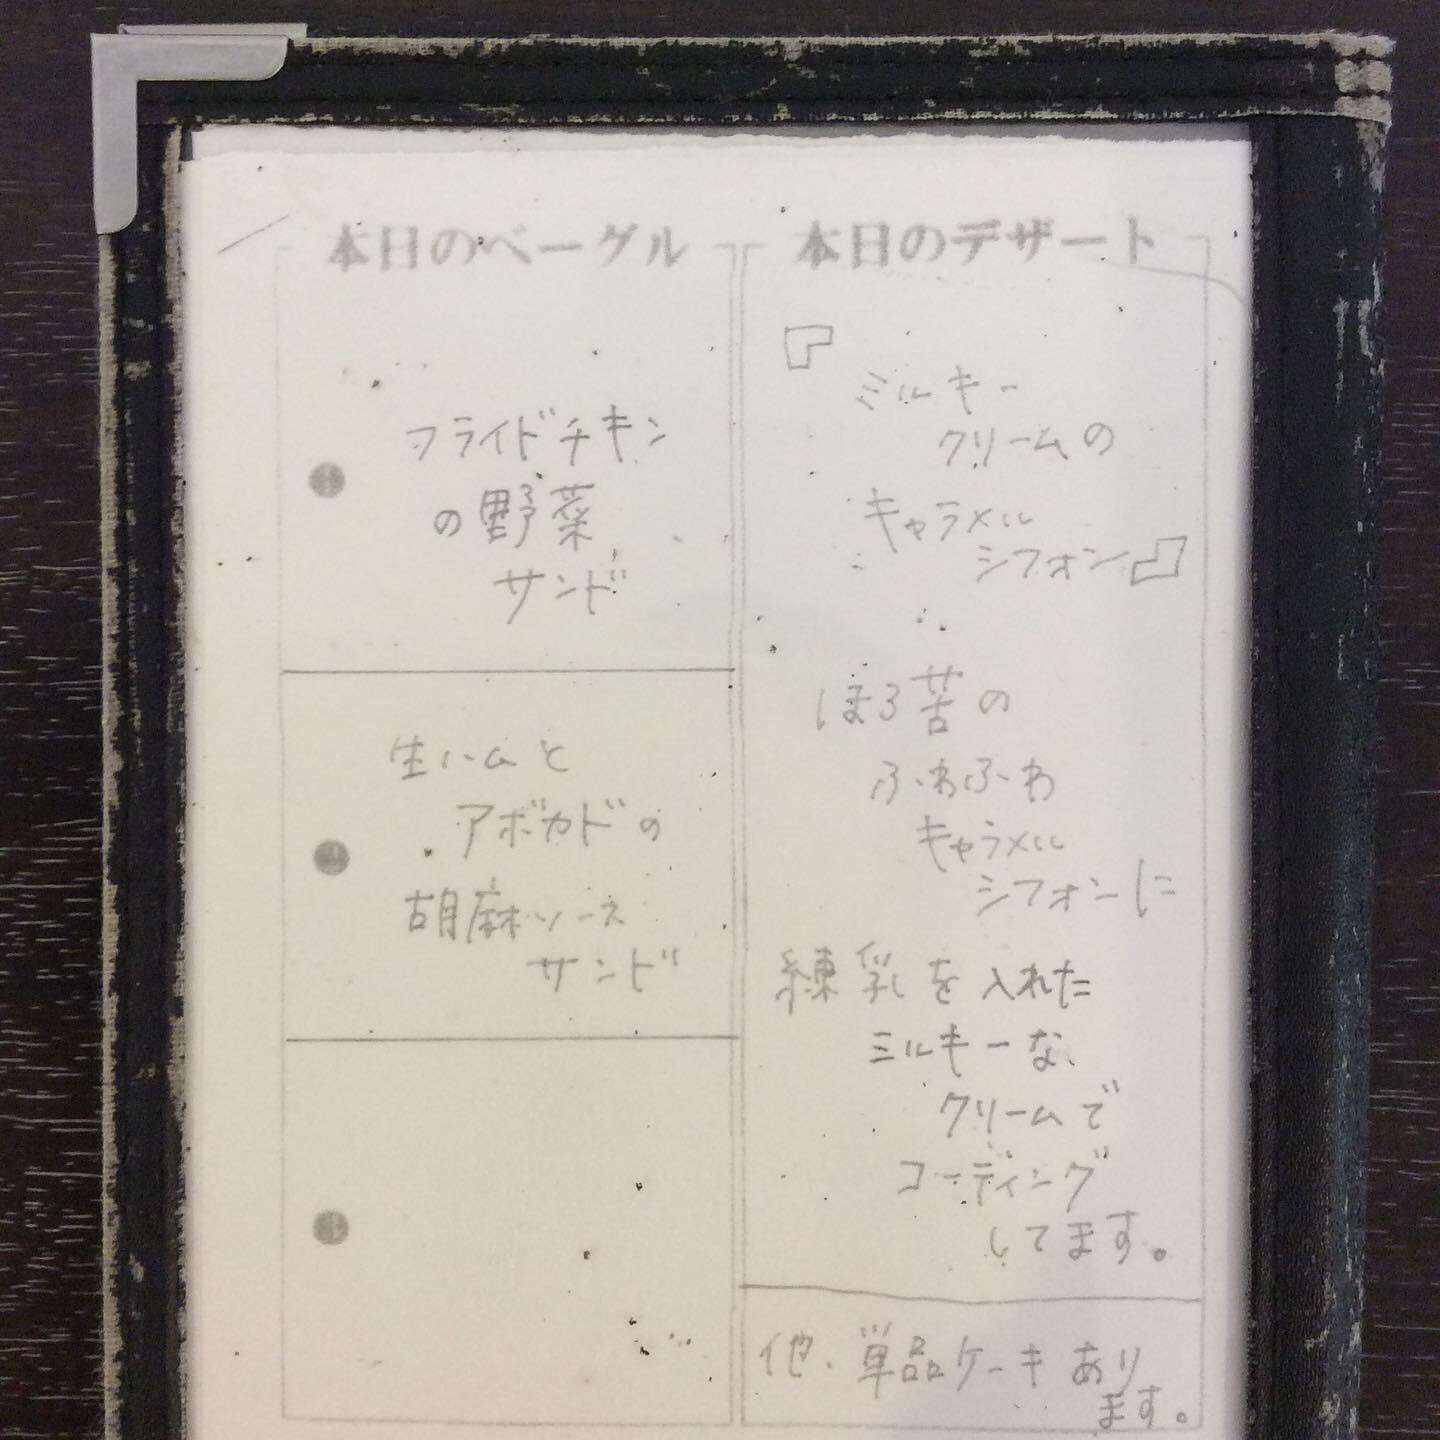 本日のベーグル
フライドチキン
の野菜
サンド
生ハムと
アボカドの
胡麻ソース
サンド
本日のデザート
『ミルキー
クリームの
キャラメル
シフォン』
ほろ苦の
ふわふわ
キャラメル
シフォンに
練乳を入れた
ミルキーな
クリームで
コーディング
してます。
他、単品ケーキあり
ます。